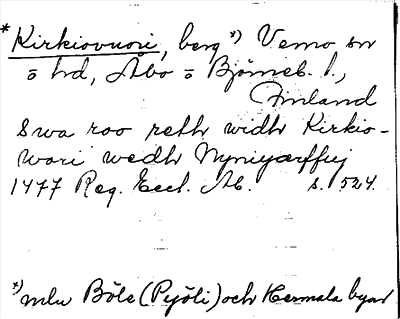 * Kirkiovuori, berg *) Vemo sn
o hd, Åbo o Björneb. l.,
Finland
Swa roo reth widh Kirkio-
wori wedh Nyniyærffuj
1477 Reg. Eccl. Ab. s. 524.
*) mlu Böle (Pyöli) och Hermala byar